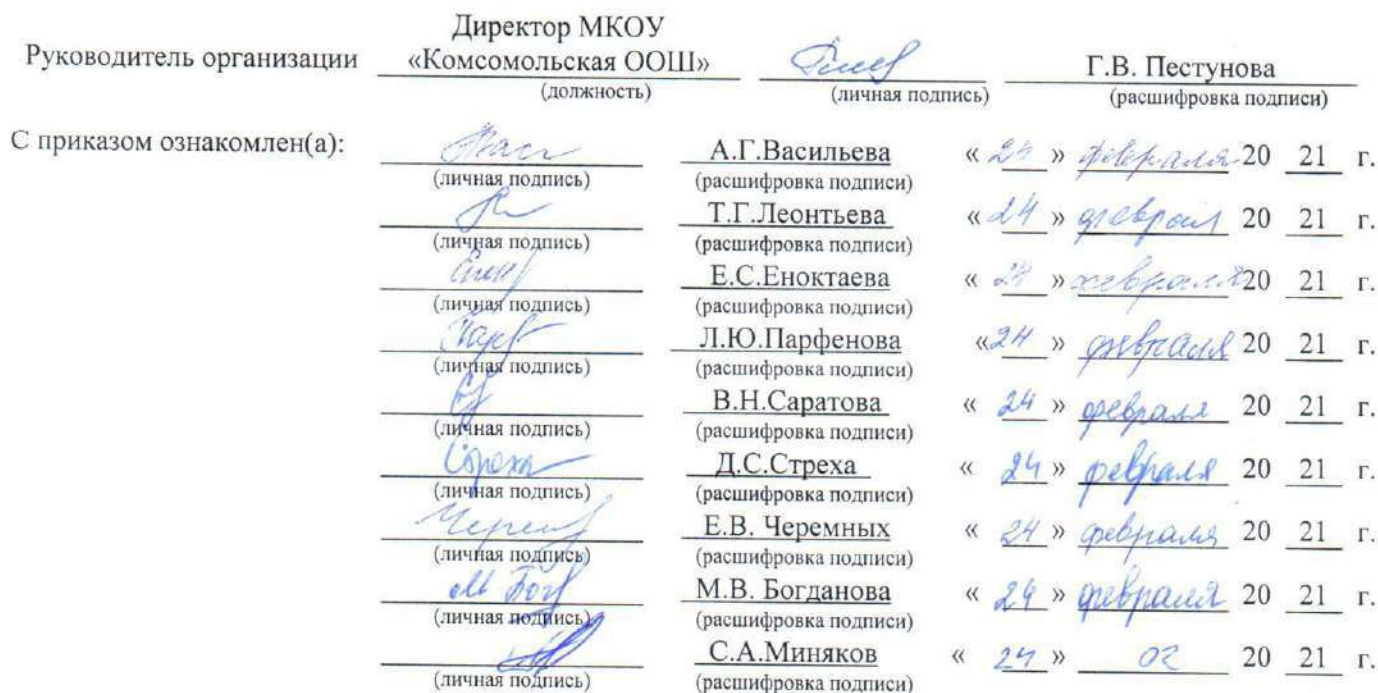 Директор МКОУ
Руководитель организации «Комсомольская ООШ» Г.В. Пестунова
(должность) (личная подпись) (расшифровка подписи)
С приказом ознакомлен(а): Вас А.Г.Васильева « 24 » февраля 20 21 г.
(личная подпись) (расшифровка подписи)
Т.Г.Леонтьева « 24 » феврал 20 21 г.
(личная подпись) (расшифровка подписи)
Е.С.Еноктаева « 24 » февраля 20 21 г.
(личная подпись) (расшифровка подписи)
Парф Л.Ю.Парфенова « 24 » февраля 20 21 г.
(личная подпись) (расшифровка подписи)
В.Н.Саратова « 24 » февраля 20 21 г.
(личная подпись) (расшифровка подписи)
Д.С.Стреха « 24 » февраля 20 21 г.
(личная подпись) (расшифровка подписи)
Черем Е.В. Черемных « 24 » февраля 20 21 г.
(личная подпись) (расшифровка подписи)
М Бог М.В. Богданова « 24 » февраля 20 21 г.
(личная подпись) (расшифровка подписи)
С.А.Миняков « 24 » 02 20 21 г.
(личная подпись) (расшифровка подписи)